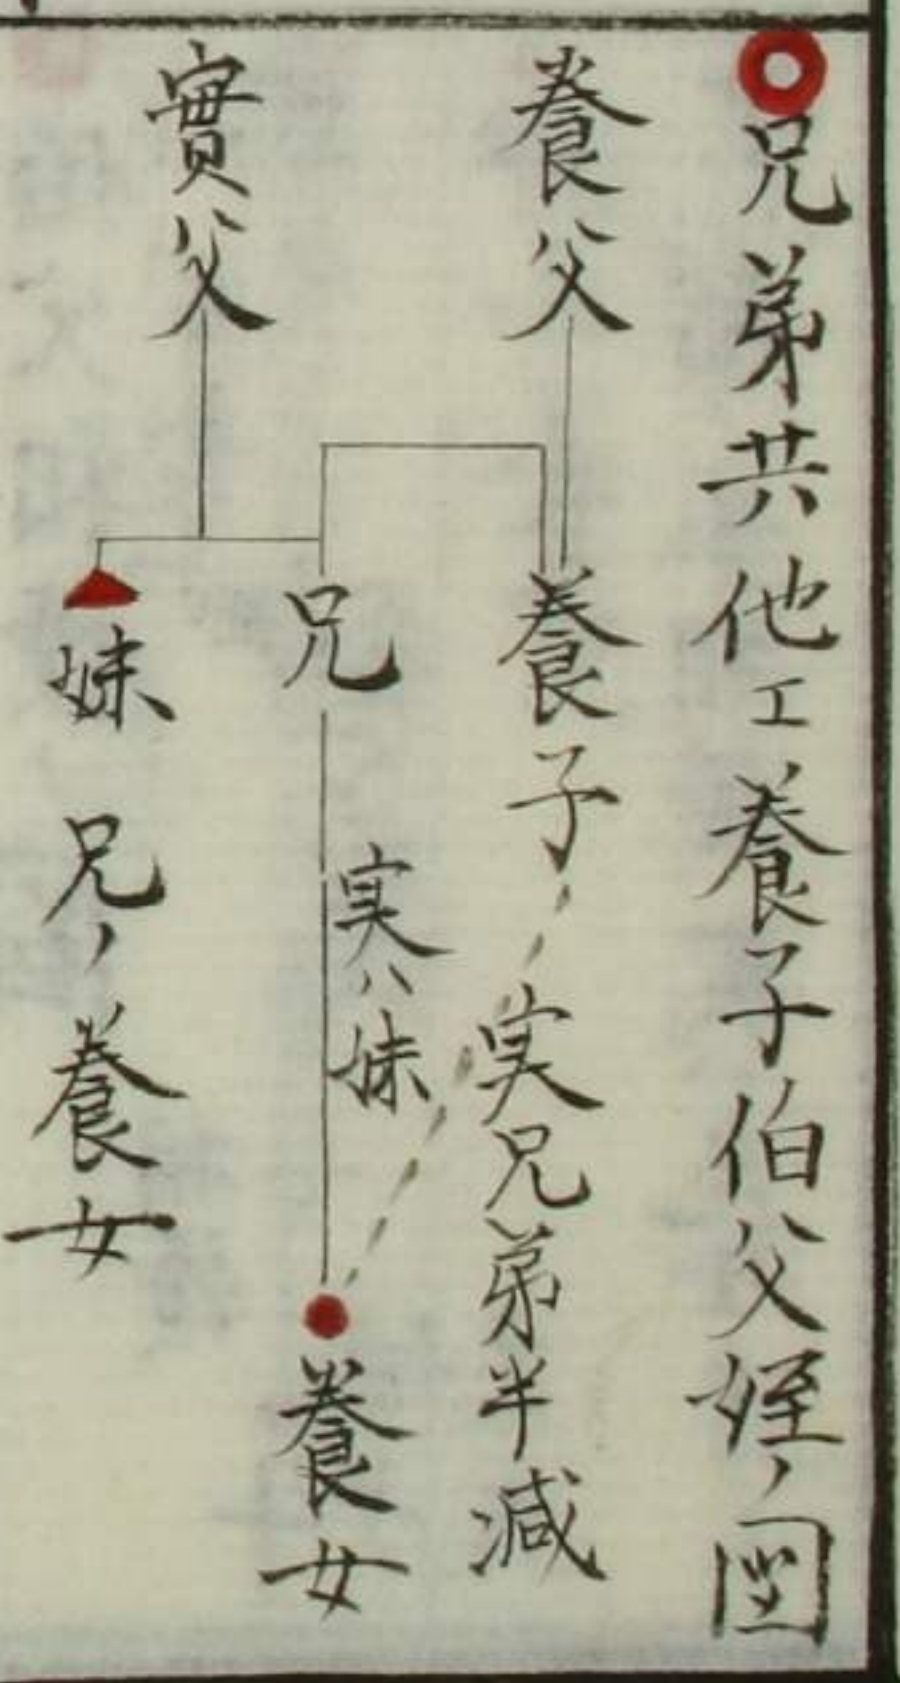 兄弟共他エ養子伯父姪ノ圖
養父
養子
実兄弟半減
兄
実ハ妹
養女
實父
妹 兄ノ養女